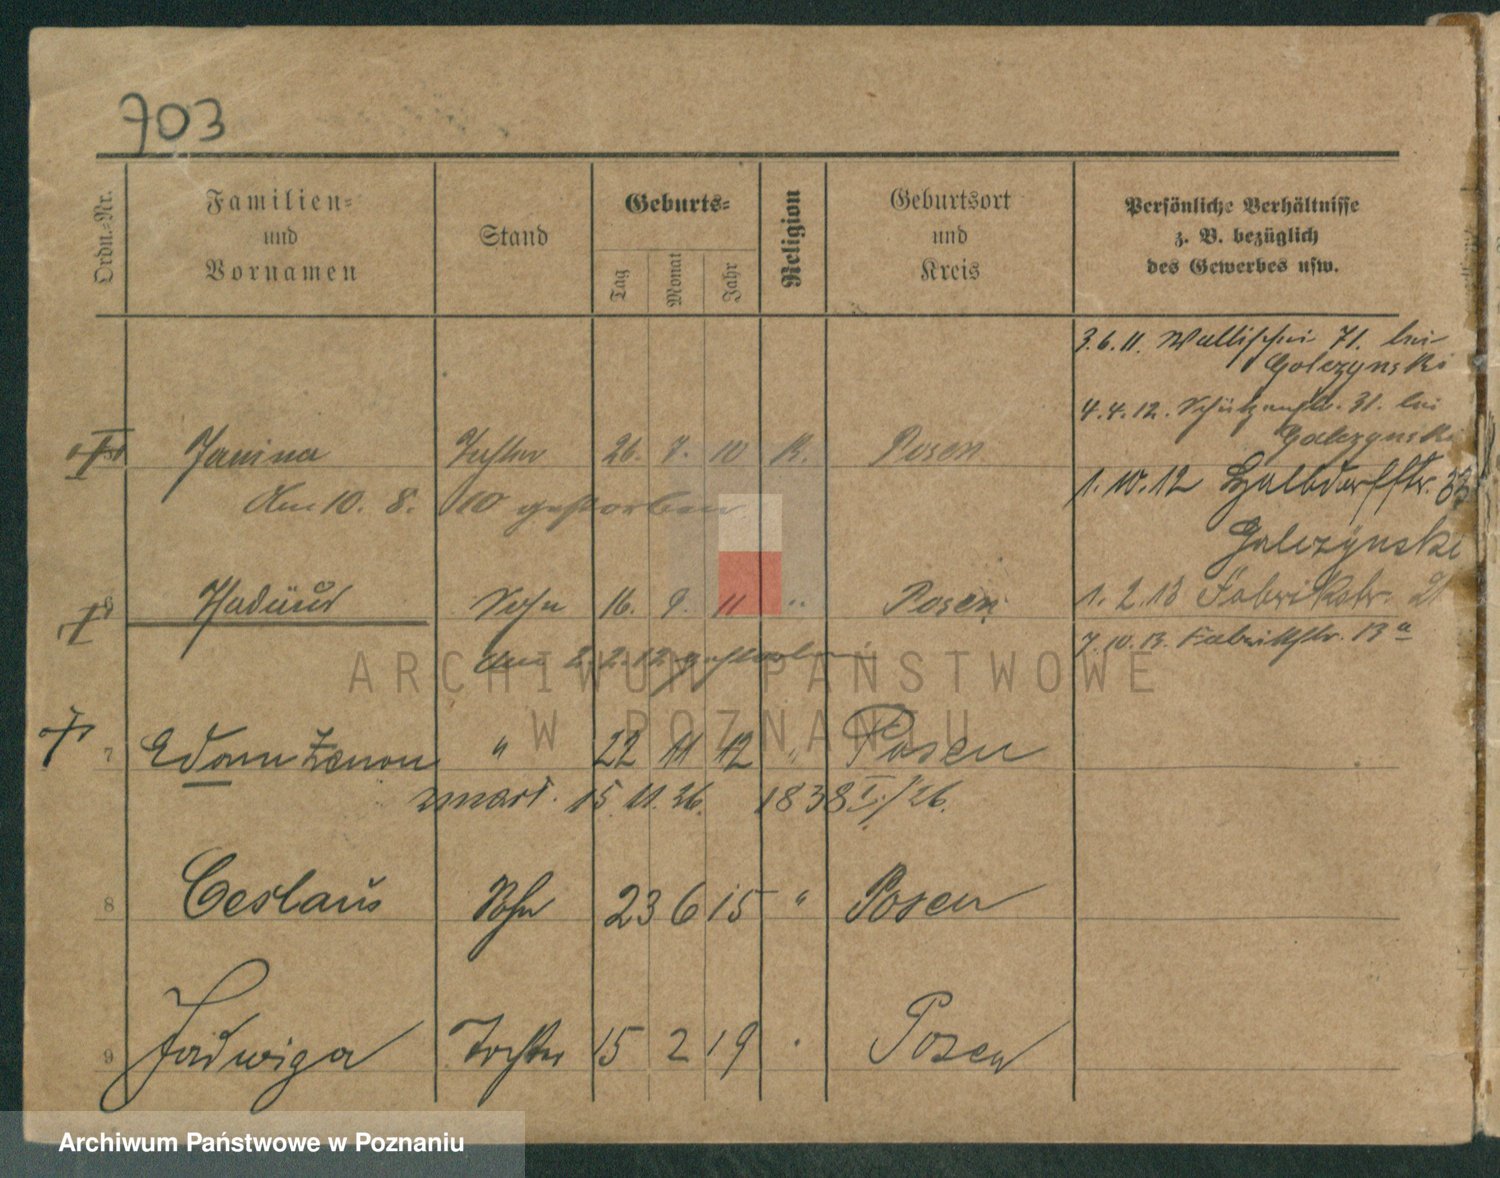 703
Ordn.-Nr.
Familien-
und
Vornamen
Stand
Geburts-
Tag
Monat
Jahr
Religion
Geburtsort
und
Kreis
Persönliche Verhältnisse
z. B. bezüglich
des Gewerbes usw.
3.6.11. Wallischei 71. bei
Golczynski
4.4.12. Schützenstr. 31. bei
Galczynski
† Janina Tochter 26. 7. 10 K. Posen
1.10.12 Halbdorfstr. 33
Am 10. 8. 10 gestorben
Galczynski
† 6 Thadäus Sohn 16. 9. 11 " Posen
1. 2. 13 Fabrikstr. 21
7.10.13. Fabrikstr. 13a
am 2.2.12 gestorben
† 7 Edom Zenon " 22 11 12 " Posen
zmarł. 15.11.26. 1838 I/26.
8 Ceslaus Sohn 23 6 15 " Posen
9 Jadwiga Tochter 15 2 19 " Posen
ARCHIWUM PAŃSTWOWE
W POZNANIU
Archiwum Państwowe w Poznaniu